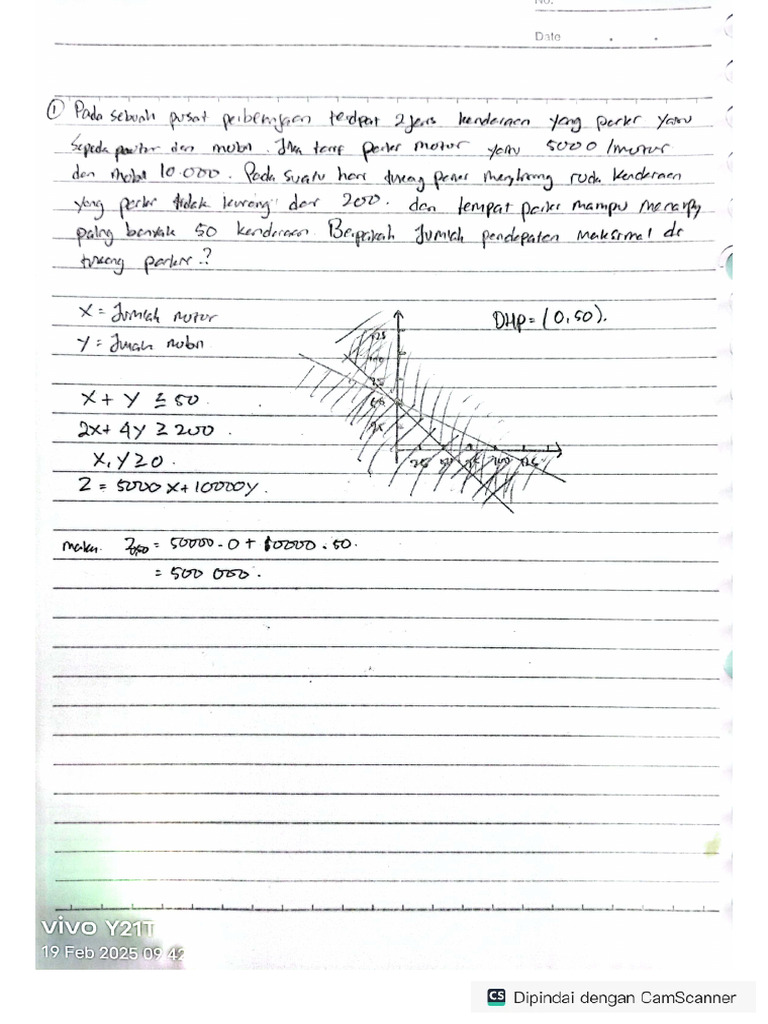 No.
Date
① Pada sebuah pusat perbelanjaan terdpat 2 jenis kendaraan yang parkir yaitu
sepeda motor dan mobil. Jika tarif parkir motor yaitu 5000/motor
dan mobil 10.000. Pada suatu hari tukang parkir menghitung roda kendaraan
yang parkir tidak kurang dari 200. dan tempat parkir mampu menampung
paling banyak 50 kendaraan. Berapakah Jumlah pendapatan maksimal dr
tukang parkir.?
x = Jumlah motor
DHP = (0,50).
y = Jumlah mobil
125
100
75
50
25
25 50 75 100 125
x + y ≤ 50
2x + 4y ≥ 200
x, y ≥ 0.
Z = 5000 x + 10000y.
maka Z0,50 = 50000 . 0 + 10000 . 50.
= 500 000.
vivo Y21T
19 Feb 2025 09 42
CS Dipindai dengan CamScanner